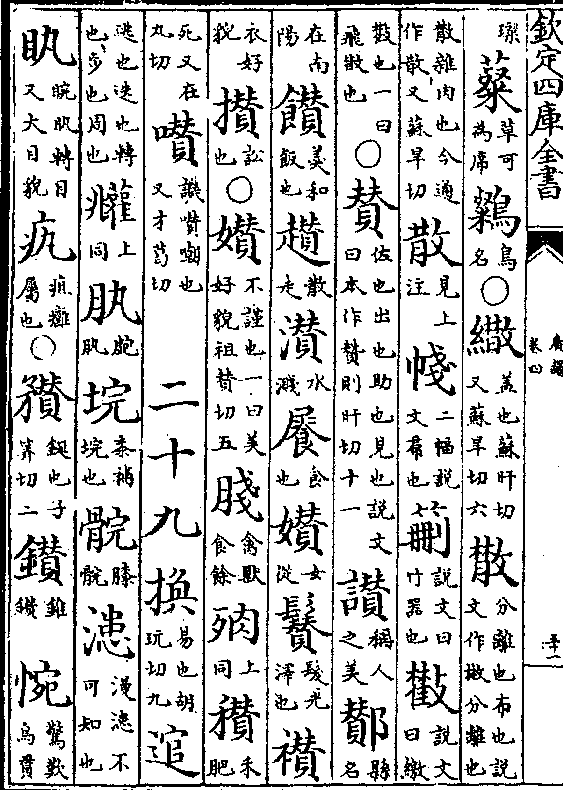 欽定四庫全書
廣韻
卷四
三十一
璨 薒 草可為席 鳥名 ○ 繖 蓋也蘇旰切又蘇旱切六 散 分離也布也說文作㪔分離也
散雜肉也今通作散又蘇旱切 散 見上注 帴 二幅說文帬也 說文曰竹器也 說文曰繳
㪔也一曰飛㪔也 ○ 賛 佐也出也助也見也說文曰本作賛則旰切十一 讃 稱人之美 酇 縣名
在南陽 饡 羮和飯也 趲 散走 灒 水濺 食也 女從 髮光澤也 禶
衣好貌 攢 訟也 ○ 不謹也一曰美好貌祖賛切五 禽獸食餘 上同 穳 禾肥
死又在丸切 囋 譏囋嘲也又才葛切 二十九 換 易也胡玩切九 逭
逃也迭也轉也步也周也 上同 肒 胞肒 垸 桼補垸也 髖 膝髖 漶 漫漶不可知也
䀓 睕䀓轉目又大目貌 疽癰屬也 ○ 穳 鋋也子筭切二 鑽 錐鑽 惋 驚歎烏貫